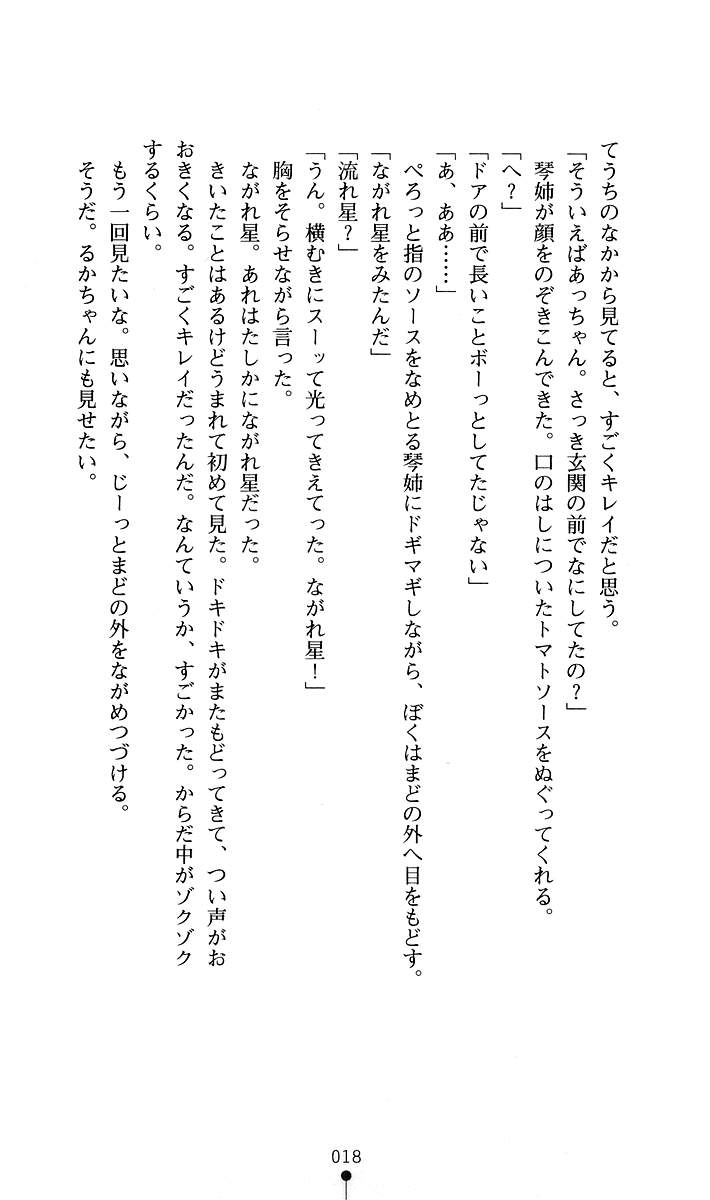 てうちのなかから見てると、すごくキレイだと思う。
「そういえばあっちゃん。さっき玄関の前でなにしてたの？」
琴姉が顔をのぞきこんできた。口のはしについたトマトソースをぬぐってくれる。
「へ？」
「ドアの前で長いことボーっとしてたじゃない」
「あ、ああ……」
ぺろっと指のソースをなめとる琴姉にドギマギしながら、ぼくはまどの外へ目をもどす。
「ながれ星をみたんだ」
「流れ星？」
「うん。横むきにスーッて光ってきえてった。ながれ星！」
胸をそらせながら言った。
ながれ星。あれはたしかにながれ星だった。
きいたことはあるけどうまれて初めて見た。ドキドキがまたもどってきて、つい声がお
おきくなる。すごくキレイだったんだ。なんていうか、すごかった。からだ中がゾクゾク
するくらい。
もう一回見たいな。思いながら、じーっとまどの外をながめつづける。
そうだ。るかちゃんにも見せたい。
018